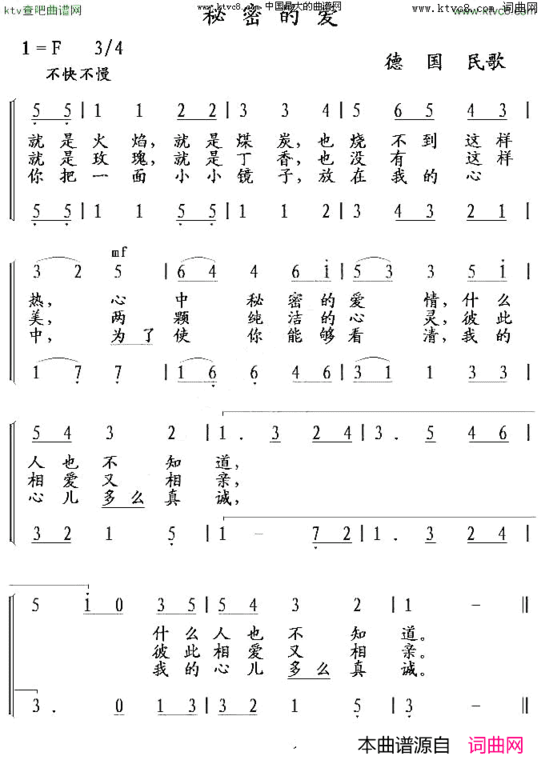 ktv查吧曲谱网
www.ktvc8.com 中国最大的曲谱网
www.ktvc8.com 词曲网
秘密的爱
1=F 3/4
德国 民歌
不快不慢
5 5 | 1 1 2 2 | 3 3 4 | 5 6 5 4 3
就是火焰,就是煤炭,也烧不到这样
就是玫瑰,就是丁香,也没有 这样
你把一面小小镜子,放在我的心
5 5 | 1 1 5 5 | 1 1 2 | 3 4 3 2 1
mf
3 2 5 | 6 4 4 6 i | 5 3 3 5 i
热, 心中 秘密的爱 情,什么
美, 两颗 纯洁的心 灵,彼此
中, 为了使 你能够看 清,我的
1 7 7 | 1 6 6 4 6 | 3 1 1 3 3
5 4 3 2 | 1. 3 2 4 | 3. 5 4 6
人也不知 道,
相爱又相 亲,
心儿多么真 诚,
3 2 1 5 | 1 – 7 2 | 1. 3 2 4
5 i 0 3 5 | 5 4 3 2 | 1 – ||
什么人也不知 道。
彼此相爱又相 亲。
我的心儿多么真 诚。
3. 0 1 3 | 3 2 1 5 | 3 – ||
本曲谱源自 词曲网